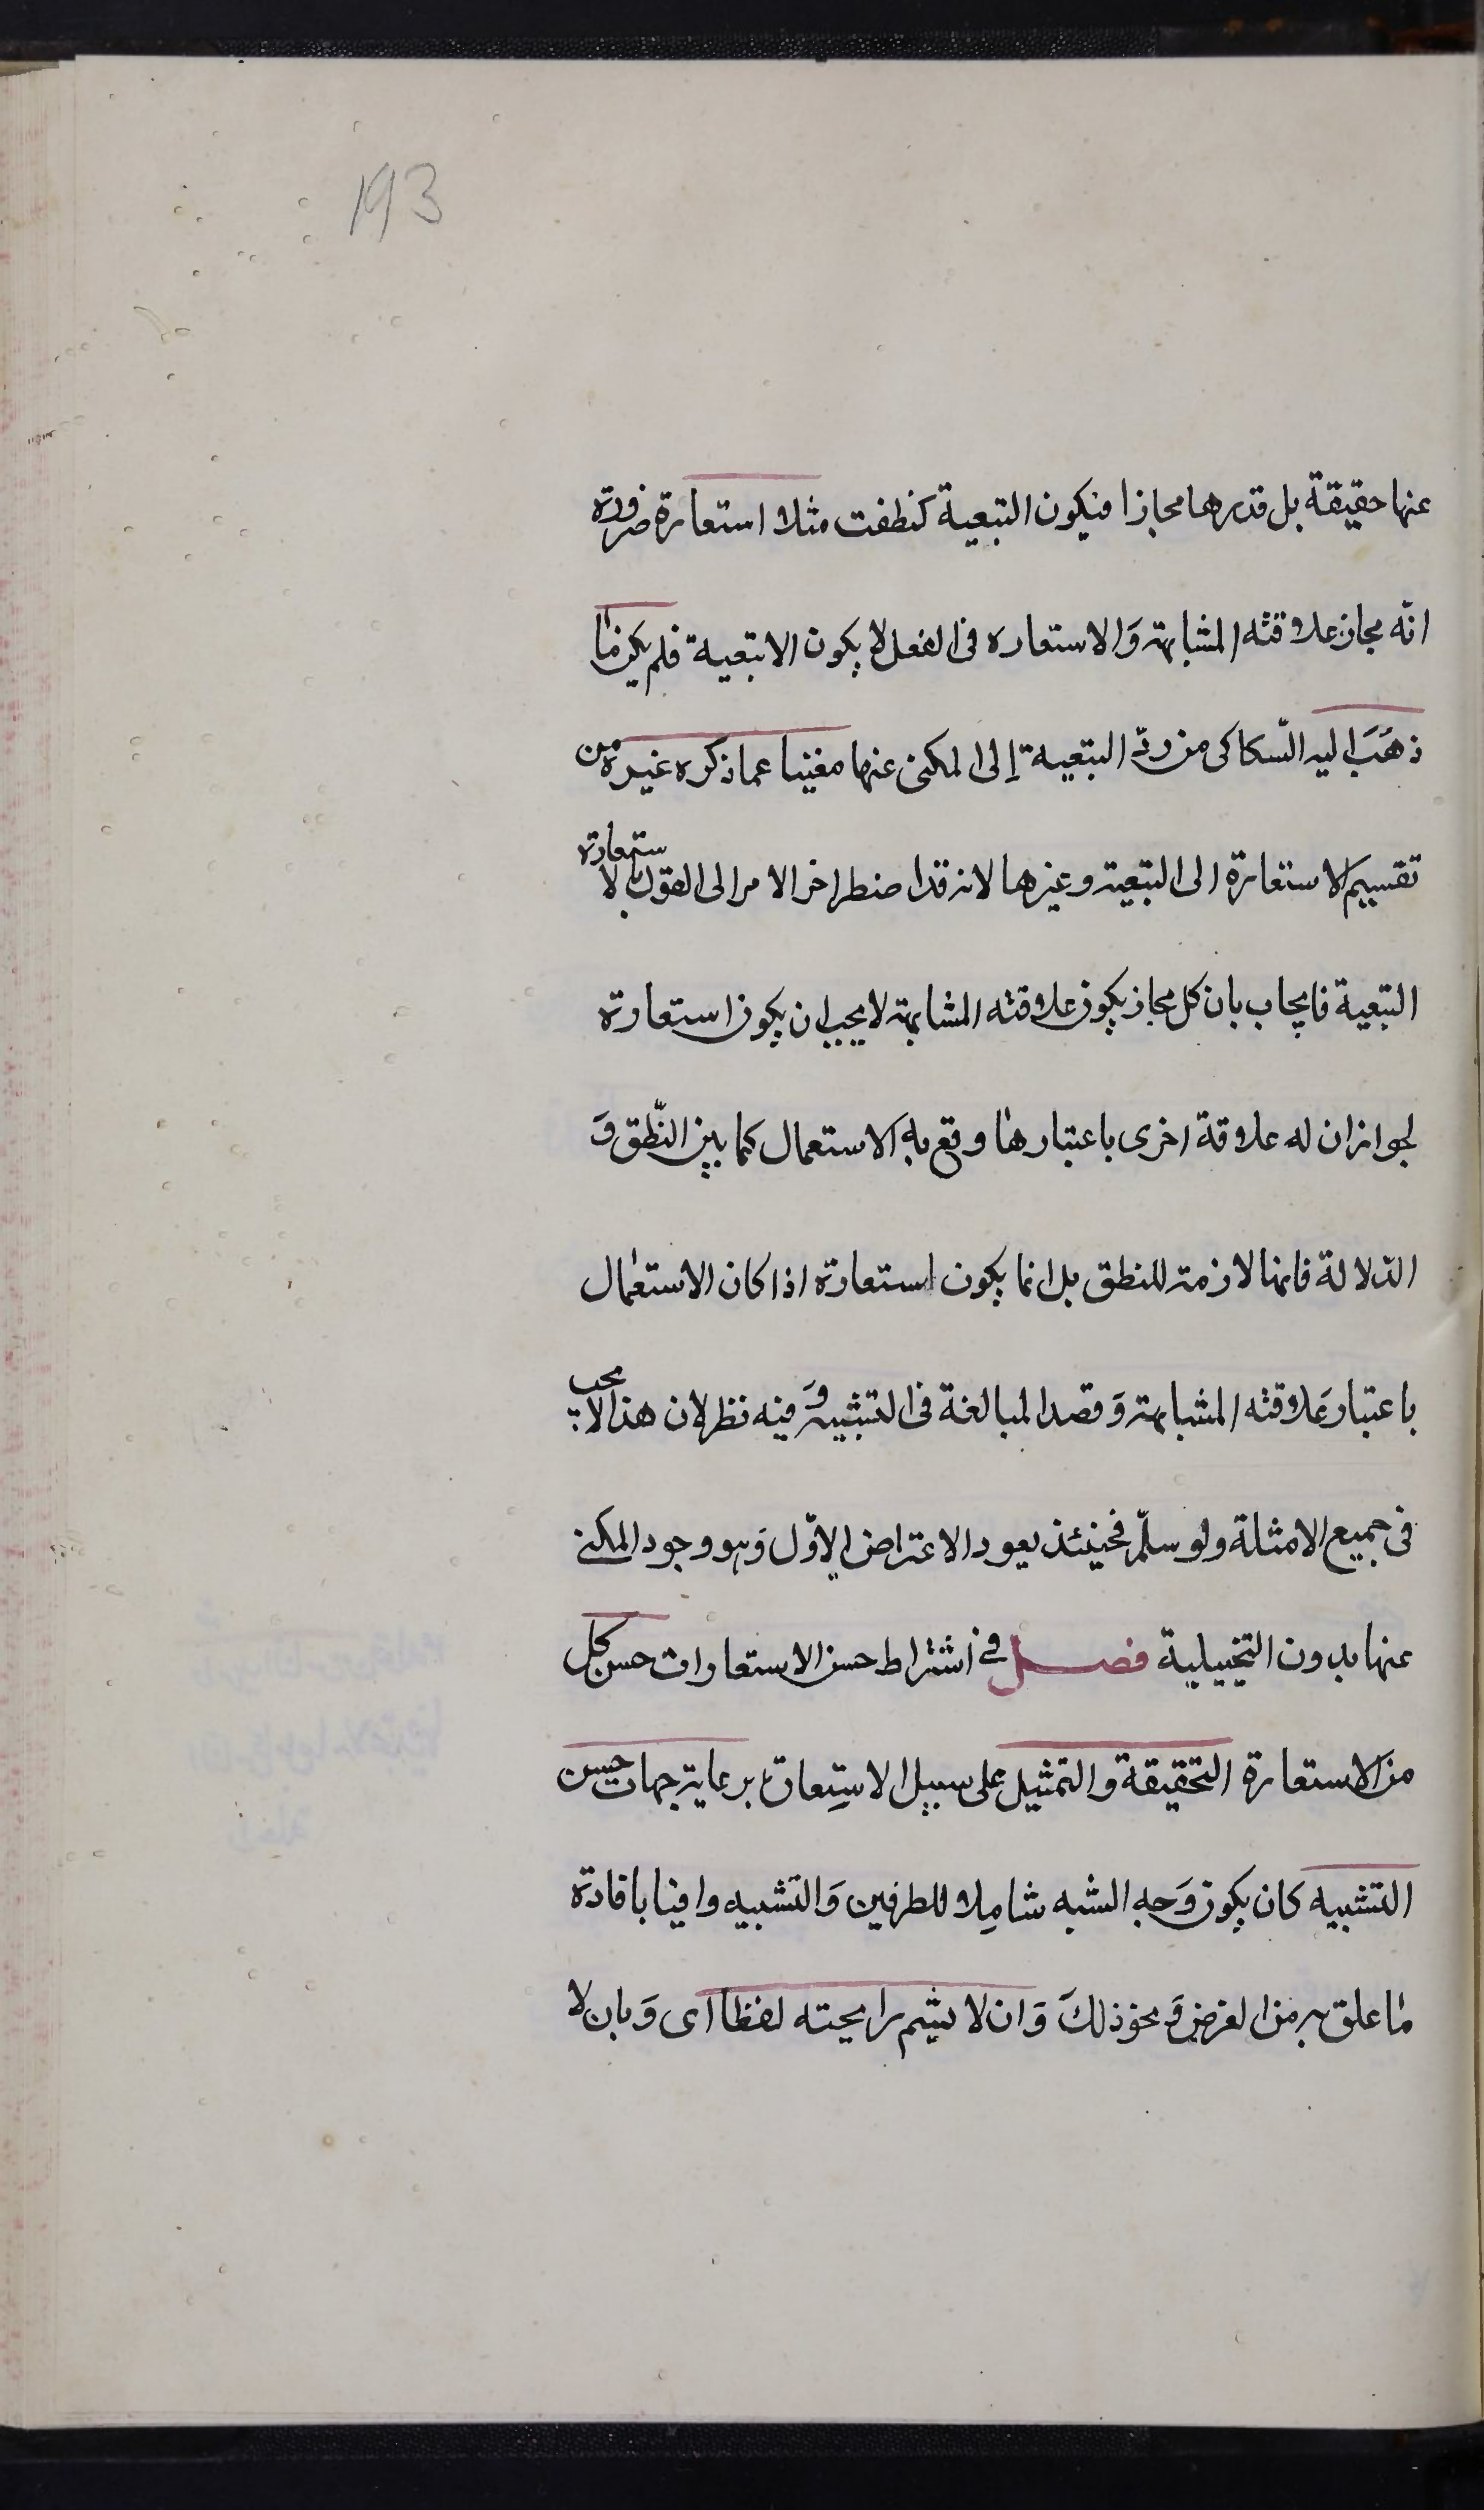 193
عنها حقيقة بل قدرها مجازا فيكون التبعية كنطقت مثلا استعارة ضرورة
انّه مجاز علاقته المشابهة وَالاستعاره فى الفعل لا يكون الا تبعية فلم يكن ما
ذهَبَ اليه السّكاكى من ردّ التبعية إلى المكنى عنها مغنيا عما ذكره غيره من
تقسيم الاستعارة الى التبعية وغيرها لانه قد اضطر اخر الامر الى القول بالاستعارة
التبعية فايجاب بان كل مجاز يكون علاقته المشابهة لا يجب ان يكون استعارة
لجواز ان له علاقة اخرى باعتبارها وقع به الاستعمال كما بين النّطق وَ
الدّلالة فانها لازمة للنطق بل انما يكون استعارة اذا كان الاستعمال
باعتبار عَلاقته المشابهة وَقصد المبالغة فى التشبيه وَفيه نظر لان هذا لا يجب
فى جميع الامثلة ولو سلّم فحينئذ يعود الاعتراض الاوّل وَهو وجود المكنى
عنها بدون التخييلية فصل فى اشتراط حسن الاستعارات حسن كل
من الاستعارة التحقيقة والتمثيل على سبيل الاستِعارة برعاية جهات حسن
التشبيه كان يكون وَجه الشبه شامِلا للطرفين وَالتشبيه وافيا بافادة
ما علق به من الغرض وَنحو ذلكَ وَان لا يشم رايحته لفظا اى وَبان لا